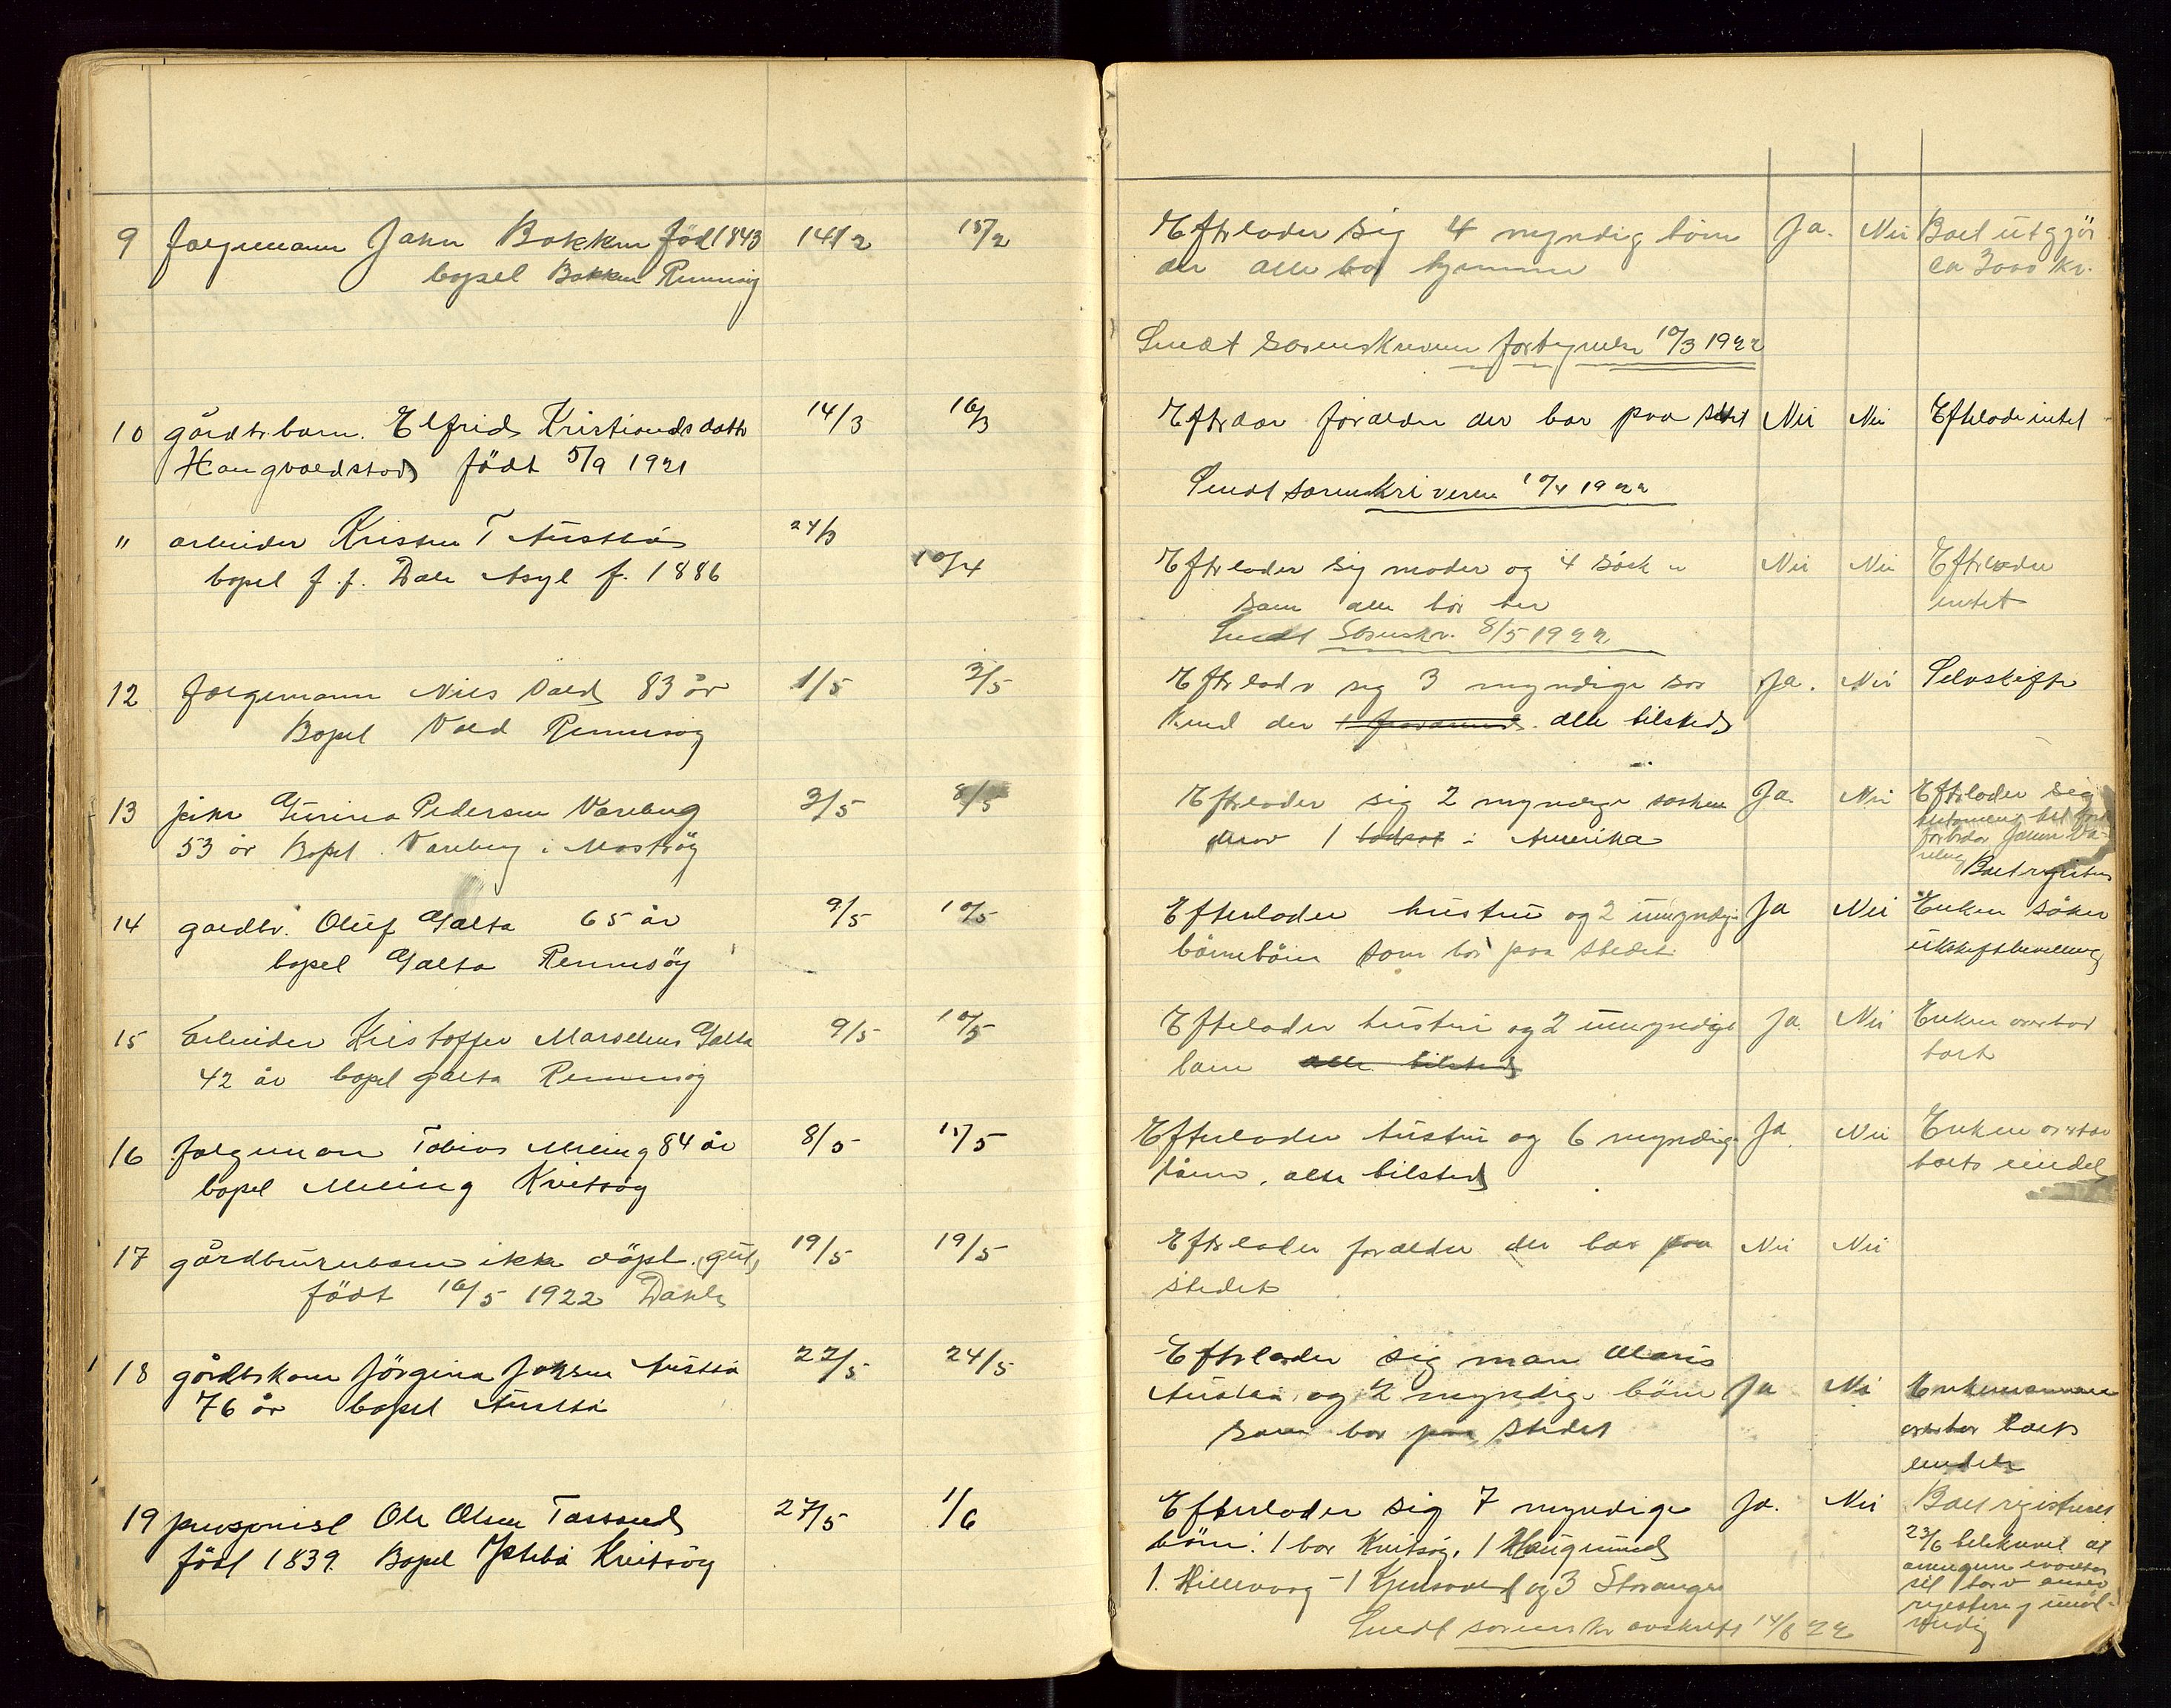 9 Jakn Bokken föd 1843 14/2 15/2 Efterlader sig 4 myndig börn Ja. Nei Boet utgjör
bopel Bokken Rennesöy der alle bor hjemme ca 3000 kr.
Sendt Sorenskriveren fortegnelse 10/3 1922
10 gårdbr.barn. Elfrid Kristiansdatter 14/3 16/3 Efterlader foreldre der bor paa stedet Nei Nei Efterlader intet
Haugvaldstad födt 5/9 1921
Sendt sorenskriveren 10/4 1922
" arbeider Kristen T Austbö 24/3 10/4 Efterlader sig moder og 4 sösken Nei Nei Efterlader
bopel f.t. Dale Asyl f. 1886 som alle bor her intet
Sendt Sorenskr. 8/5 1922
12 Folgemann Nils Vold 83 år 1/5 3/5 Efterlader sig 3 myndige sös Ja. Nei Selvskifte
Bopel Vold Rennesöy kend der alle tilsteds
13 pike Gurina Pedersen Vareberg 3/5 8/5 Efterlader sig 2 myndige sösken Ja. Nei Efterlader sig
53 år Bopel Vareberg i Mosteröy hvorav 1 i Amerika testament til
Boet registrer
14 gardbr. Oluf Galta 65 år 9/5 10/5 Efterlader hustru og 2 umyndige Ja Nei Enken söker
bopel Galta Rennesöy börnebörn som bor paa stedet. uskiftbevilling
15 Arbeider Kristoffer Marselius Galta 9/5 10/5 Efterlader hustru og 2 umyndige Ja. Nei Enken overtar
42 år bopel Galta Rennesöy barn alle tilsteds boet
16 Folgeman Tobias Meling 84 år 8/5 15/5 Efterlader hustru og 6 myndige Ja. Nei Enken overtar
bopel Meling Kvitsöy börn, alle tilsteds boets eiendel
17 gårdbrukerbarn ikke döpt (gut) 19/5 19/5 Efterlader forelder der bor paa Nei Nei
födt 16/5 1922 Dahle stedet
18 gårdbrskone Jörgina Johsen Austbö 22/5 24/5 Efterlader sig man
76 år bopel Austbö Austbö og 2 myndige börn Ja Nei Enkemannen
som bor paa stedet overtar boets
eiendele
19 pensjonist Ole Olsen Tassund 27/5 1/6 Efterlader sig 7 myndige Ja. Nei Boet registreret
född 1839. Bopel Ystebö Kvitsöy börn. 1 bor Kvitsöy, 1 Haugesund 23/6
1. Hillevaag - 1 og 3 Stavanger
Sendt sorenskr avskrift 14/6 22